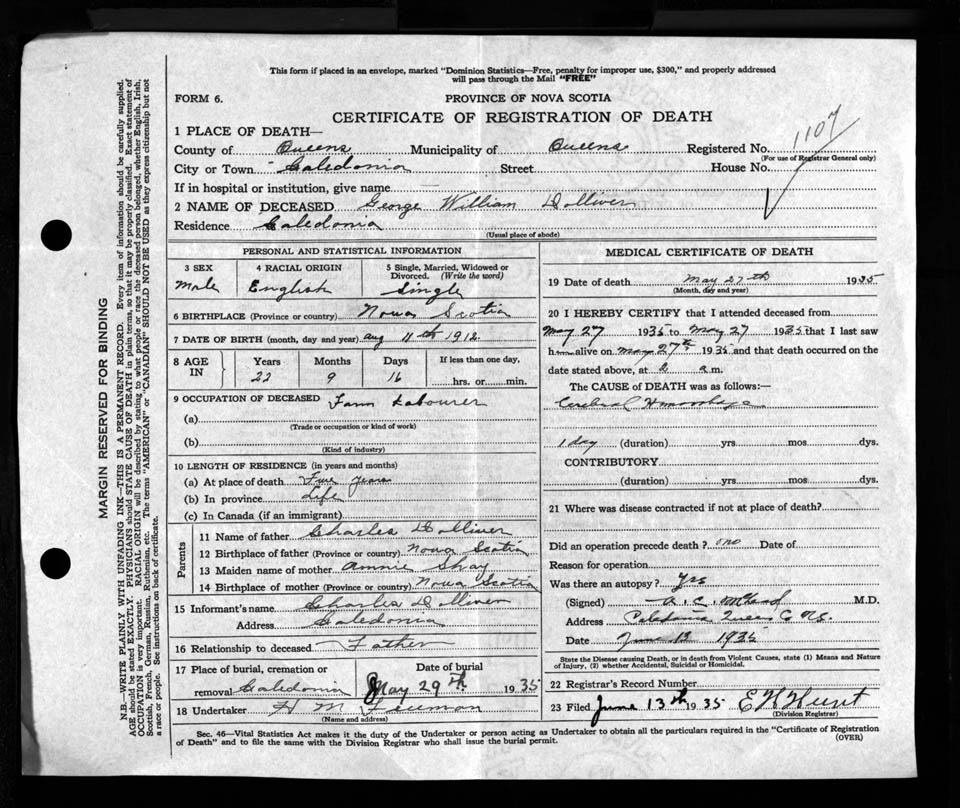 This form if placed in an envelope, marked "Dominion Statistics—Free, penalty for improper use, $300," and properly addressed
will pass through the Mail "FREE"
FORM 6.
PROVINCE OF NOVA SCOTIA
CERTIFICATE OF REGISTRATION OF DEATH
1107
1 PLACE OF DEATH—
County of Queens Municipality of Queens Registered No.
(For use of Registrar General only)
City or Town Caledonia Street House No.
If in hospital or institution, give name
2 NAME OF DECEASED George William Dolliver
Residence Caledonia
(Usual place of abode)
PERSONAL AND STATISTICAL INFORMATION
3 SEX 4 RACIAL ORIGIN 5 Single, Married, Widowed or
Divorced. (Write the word)
Male English Single
6 BIRTHPLACE (Province or country) Nova Scotia
7 DATE OF BIRTH (month, day and year) Aug 11th 1912
8 AGE IN Years Months Days If less than one day,
22 9 16 hrs. or min.
9 OCCUPATION OF DECEASED Farm Labourer
(a)
(Trade or occupation or kind of work)
(b)
(Kind of industry)
10 LENGTH OF RESIDENCE (in years and months)
(a) At place of death Five years
(b) In province Life
(c) In Canada (if an immigrant)
Parents
11 Name of father Charles Dolliver
12 Birthplace of father (Province or country) Nova Scotia
13 Maiden name of mother Annie Shay
14 Birthplace of mother (Province or country) Nova Scotia
15 Informant's name Charles Dolliver
Address Caledonia
16 Relationship to deceased Father
17 Place of burial, cremation or Date of burial
removal Caledonia May 29th 1935
18 Undertaker H M Freeman
(Name and address)
MEDICAL CERTIFICATE OF DEATH
19 Date of death May 27th 1935
(Month, day and year)
20 I HEREBY CERTIFY that I attended deceased from
May 27 1935 to May 27 1935 that I last saw
him alive on May 27th 1935 and that death occurred on the
date stated above, at a m.
The CAUSE of DEATH was as follows:—
Cerebral Hmorrhage
1 day (duration) yrs. mos. dys.
CONTRIBUTORY
(duration) yrs. mos. dys.
21 Where was disease contracted if not at place of death?
Did an operation precede death? no Date of
Reason for operation
Was there an autopsy? Yes
(Signed) M.D.
Address Caledonia Queens Co N.S.
Date June 13 1935
State the Disease causing Death, or in death from Violent Causes, state (1) Means and Nature
of Injury, (2) whether Accidental, Suicidal or Homicidal.
22 Registrar's Record Number
23 Filed June 13th 1935 E H Hunt
(Division Registrar)
Sec. 46—Vital Statistics Act makes it the duty of the Undertaker or person acting as Undertaker to obtain all the particulars required in the "Certificate of Registration
of Death" and to file the same with the Division Registrar who shall issue the burial permit.
(OVER)
MARGIN RESERVED FOR BINDING
N.B.—WRITE PLAINLY WITH UNFADING INK—THIS IS A PERMANENT RECORD. Every item of information should be carefully supplied.
AGE should be stated EXACTLY. PHYSICIANS should STATE CAUSE OF DEATH in plain terms, so that it may be properly classified. Exact statement of
OCCUPATION is very important. RACIAL ORIGIN will be described by stating to what people or race the deceased person belonged, whether English, Irish,
Scottish, French, German, Russian, Ruthenian, etc. The terms "AMERICAN" or "CANADIAN" SHOULD NOT BE USED as they express citizenship but not
a race or people. See instructions on back of certificate.